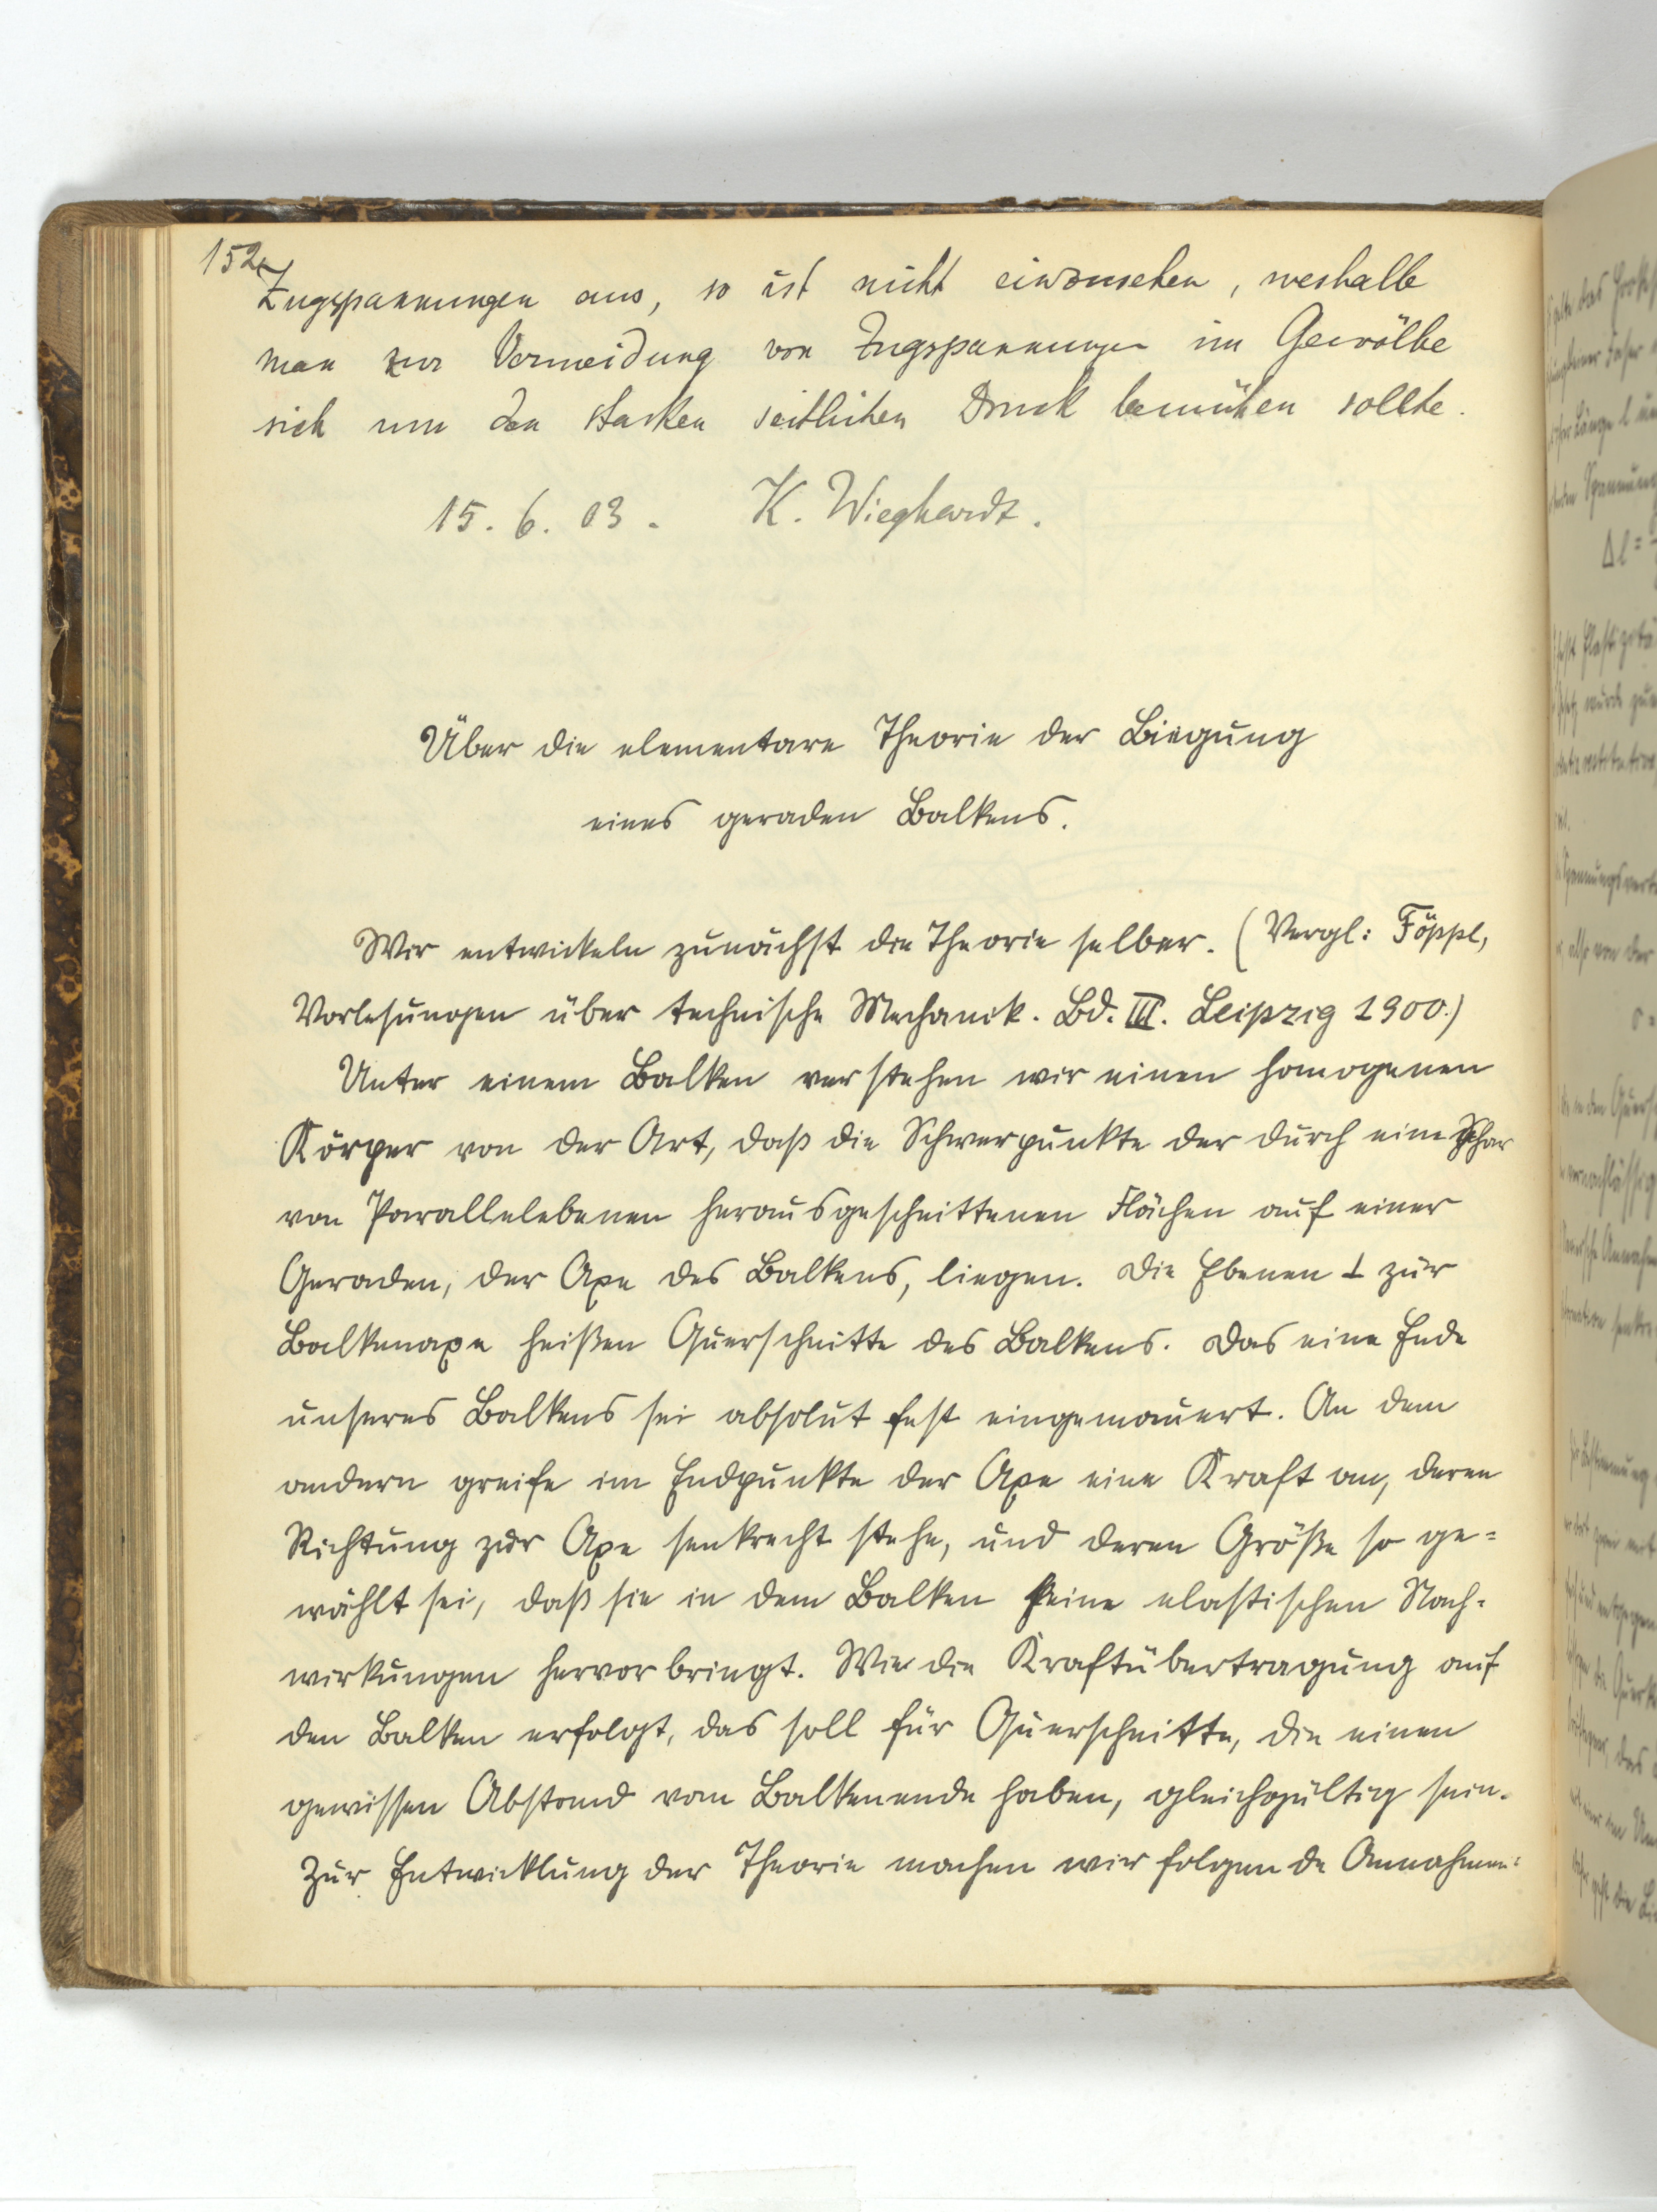 152
Zugspannungen aus, so ist nicht einzusehen, weshalb
man zur Vermeidung von Zugspannungen im Gewölbe
sich um den starken seitlichen Druck bemühen sollte.
15. 6. 03. K. Wieghardt.
Über die elementare Theorie der Biegung
eines geraden Balkens.
Wir entwickeln zunächst die Theorie selber. (Vergl: Föppl,
Vorlesungen über technische Mechanik. Bd. III. Leipzig 1900.)
Unter einem Balken verstehen wir einen homogenen
Körper von der Art, daß die Schwerpunkte der durch eine Schar
von Parallelebenen herausgeschnittenen Flächen auf einer
Geraden, der Axe des Balkens, liegen. Die Ebenen ⊥ zur
Balkenaxe heißen Querschnitte des Balkens. Das eine Ende
unseres Balkens sei absolut fest eingemauert. An dem
andern greife im Endpunkte der Axe eine Kraft an, deren
Richtung zur Axe senkrecht stehe, und deren Größe so ge=
wählt sei, daß sie in dem Balken keine elastischen Nach-
wirkungen hervorbringt. Wie die Kraftübertragung auf
den Balken erfolgt, das soll für Querschnitte, die einen
gewissen Abstand vom Balkenende haben, gleichgültig sein.
Zur Entwicklung der Theorie machen wir folgende Annahmen: